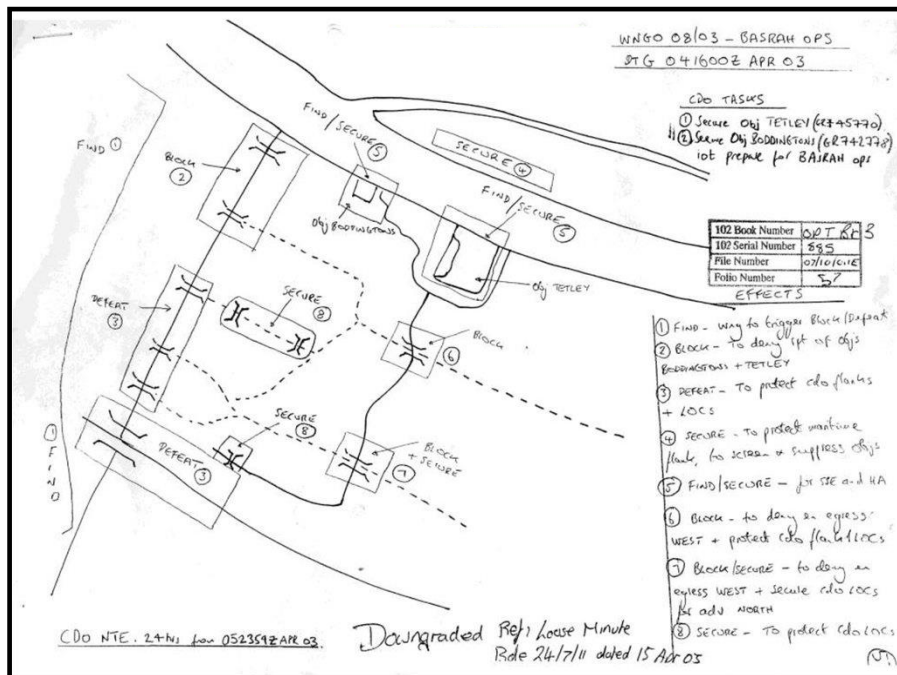 WNGO 08/03 - BASRAH OPS
STG 041600Z APR 03
CDO TASKS
① Secure Obj TETLEY (GR745770)
② Secure Obj BODDINGTONS (GR742778)
iot prepare for BASRAH ops
102 Book Number OPT 3
102 Serial Number 885
File Number
Folio Number 57
EFFECTS
① FIND - to trigger Block/Defeat
② BLOCK - to deny spt of objs
BODDINGTONS + TETLEY
③ DEFEAT - To protect cdo flanks
+ LOCS
④ SECURE - To protect maritime
flank, to screen & suppress objs
⑤ FIND/SECURE - for SSE and HA
⑥ BLOCK - to deny en egress
WEST + protect cdo flank + LOCS
⑦ BLOCK/SECURE - to deny en
egress WEST + secure cdo LOCS
for adv NORTH
⑧ SECURE - To protect Cdo LOCS
FIND ①
BLOCK
②
FIND/SECURE
⑤
SECURE ④
FIND/SECURE
⑤
Obj BODDINGTONS
Obj TETLEY
DEFEAT
③
SECURE
⑧
BLOCK
⑥
① FIND
DEFEAT ③
SECURE
⑧
BLOCK
+ SECURE
⑦
CDO NTE. 24 hrs from 052359Z APR 03
Downgraded Ref: Loose Minute
24/7/11 dated 15 Apr 03